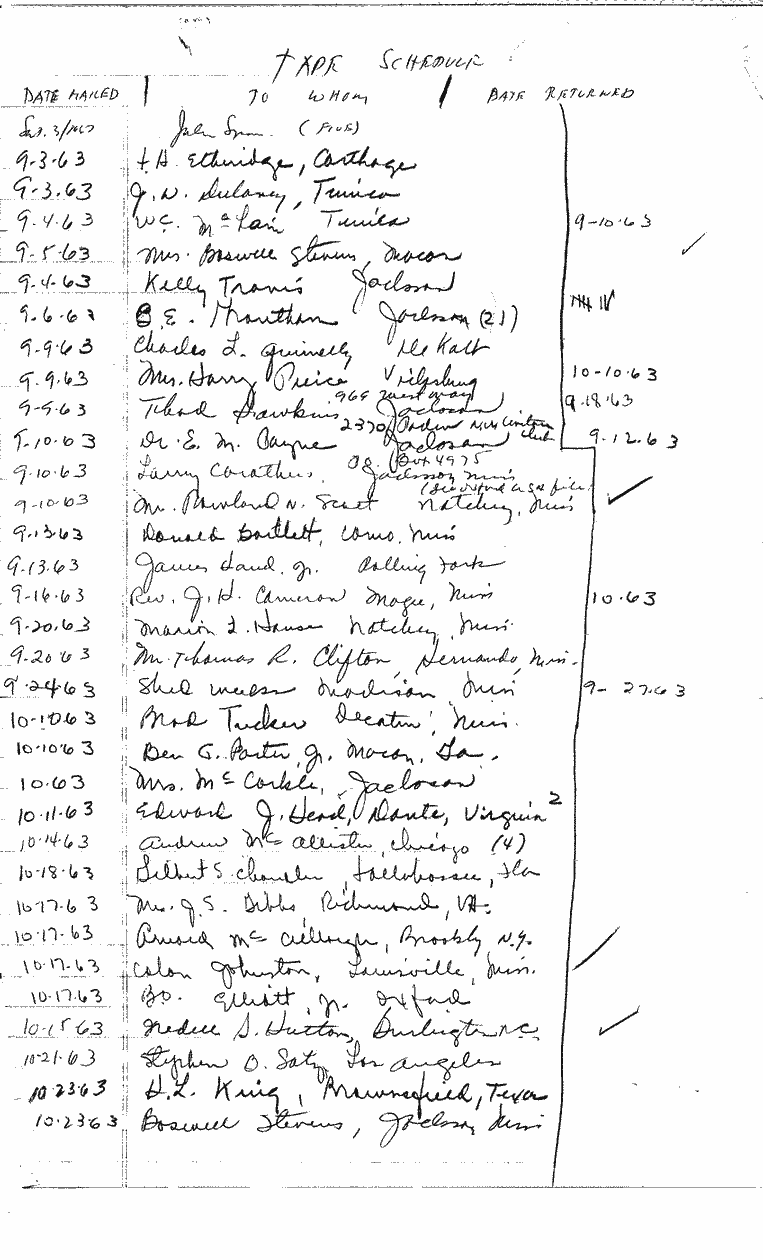 TAPE SCHEDULE
DATE MAILED | TO WHOM | DATE RETURNED
John (FIVE)
9-3-63 Etheridge, Carthage
9-3-63 J. W. Dulaney, Tunica
9-4-63 W.C. McLain Tunica 9-10-63
9-5-63 Mrs. Boswell Stevens, Macon
9-4-63 Kelly Travis Jackson
9-6-63 E. Jackson (21)
9-9-63 Charles L. Quinnelly DeKalb
9-9-63 Mrs. Harry Peirce Vicksburg 10-10-63
9-9-63 Thad Hawkins 969 Jackson 9-18-63
9-10-63 Dr. E. M. Payne 2370 Jackson 9-12-63
9-10-63 Larry Carothers Box 4975 Jackson Miss
9-10-63 Mr. Rowland N. Scott Natchez, Miss
9-13-63 Donald Bartlett, Como, Miss
9-13-63 James Hand, Jr. Rolling Fork
9-16-63 Rev. J. H. Cameron Magee, Miss 10-63
9-20-63 Marion Natchez, Miss
9-20-63 Mr. Thomas R. Clifton, Hernando, Miss.
9-24-63 Madison Miss 9-27-63
10-10-63 Brad Tucker Decatur, Miss.
10-10-63 Ben G. Porter, Jr. Macon, Ga.
10-63 Mrs. McCorkle, Jackson
10-11-63 Edward J. Head, Dante, Virginia 2
10-14-63 Andrew McAllister, Chicago (4)
10-18-63 S. Chandler, Tallahassee, Fla
10-17-63 Mrs. J. S. Gibbs, Richmond, VA.
10-17-63 Arnold McCullough, Brookly N.Y.
10-17-63 Colon Johnston, Louisville, Miss.
10-17-63 Bo. Elliott, Jr. Oxford
10-15-63 S. Hutton, Burlington N.C.
10-21-63 Stephen O. Satz, Los Angeles
10-23-63 H.L. King, Brownsfield, Texas
10-23-63 Boswell Stevens, Jackson Miss